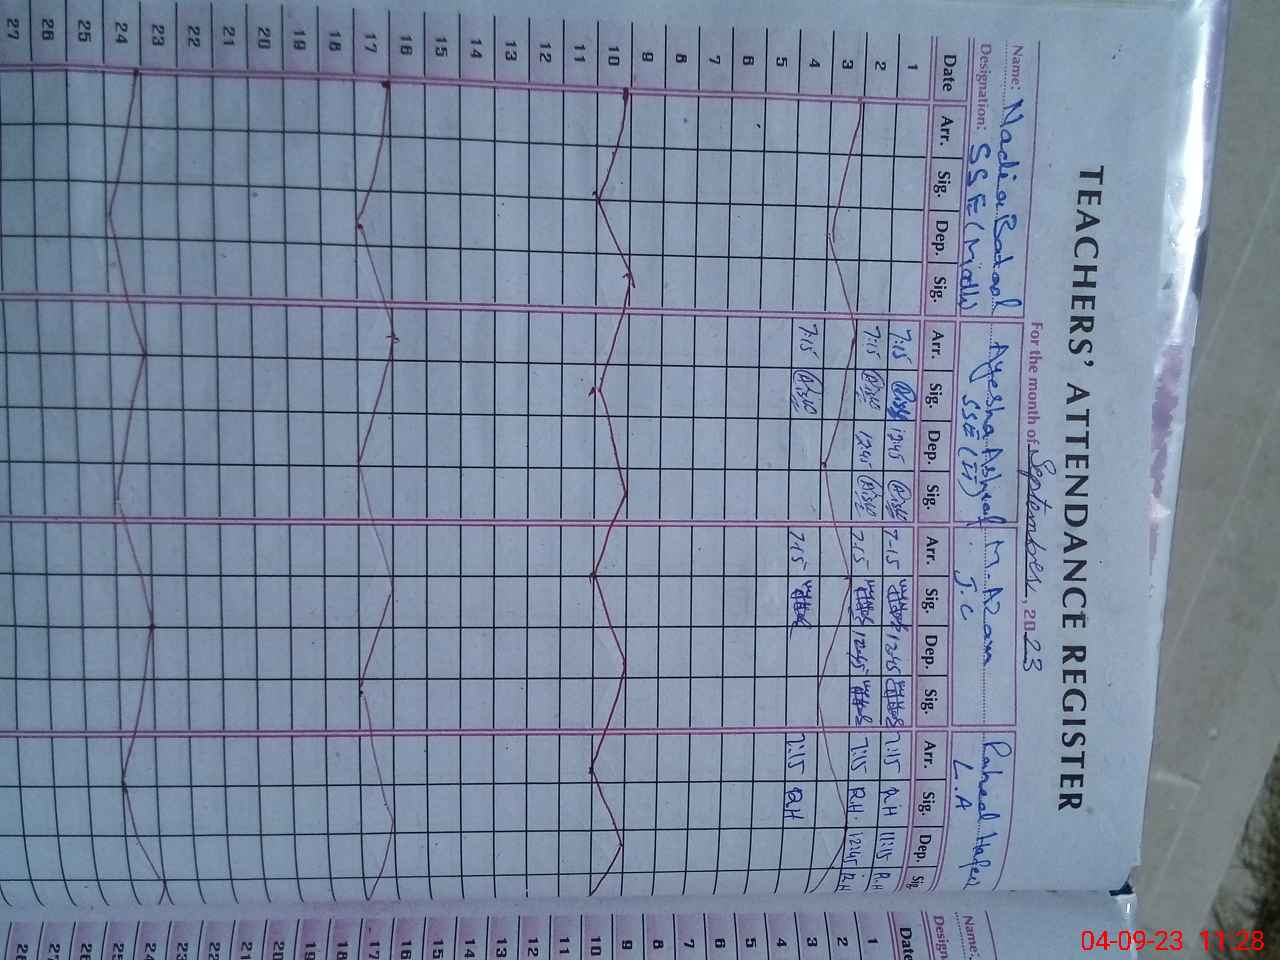 TEACHERS' ATTENDANCE REGISTER
For the month of September, 2023
Name: Nadia Batool Ayesha Ashraf M. Azam Raheel Hafeez
Designation: SSE (Math) SSE (II) J.C L.A
Date Arr. Sig. Dep. Sig. Arr. Sig. Dep. Sig. Arr. Sig. Dep. Sig. Arr. Sig. Dep. Sig
1 7:15 12:45 7-15 12:45 7:15 R.H 11:15 R.H
2 7:15 12:45 7:15 12:45 7:15 R.H. 12:45 R.H
3
4 7:15 7:15 7:15 R.H
5
6
7
8
9
10
11
12
13
14
15
16
17
18
19
20
21
22
23
24
25
26
27
Name:
Design
Date
1
2
3
4
5
6
7
8
9
10
11
12
13
14
15
16
17
18
19
20
21
22
23
24
25
26
27
28
04-09-23 11:28